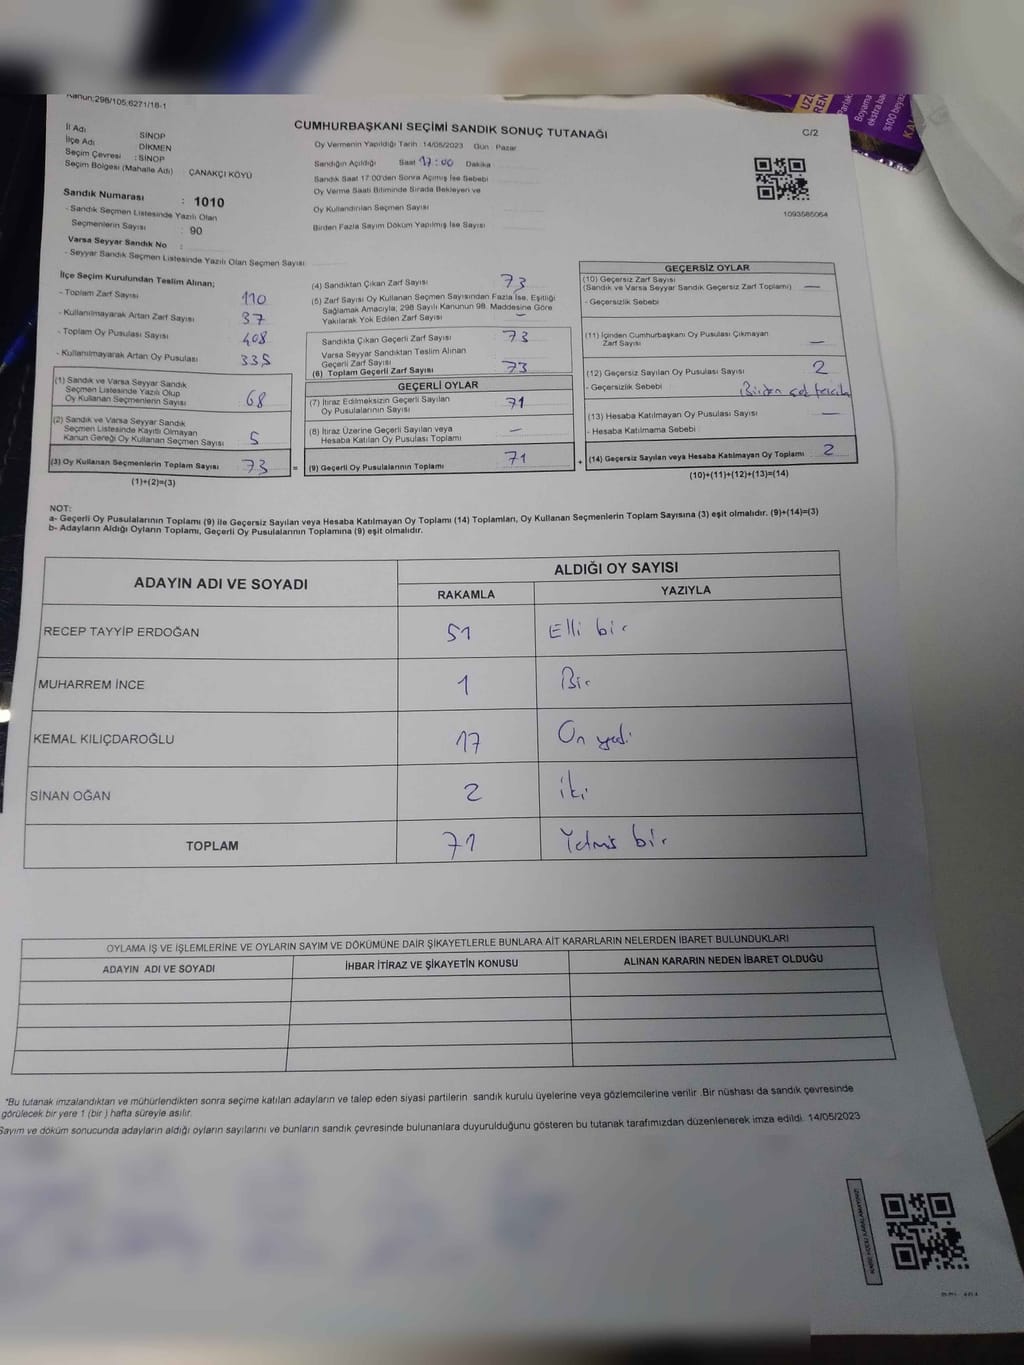 Kanun;298/105;6271/18-1
CUMHURBAŞKANI SEÇİMİ SANDIK SONUÇ TUTANAĞI
C/2
İl Adı : SİNOP
İlçe Adı : DİKMEN
Seçim Çevresi : SİNOP
Seçim Bölgesi (Mahalle Adı) : ÇANAKÇI KÖYÜ
Oy Vermenin Yapıldığı Tarih : 14/05/2023 Gün : Pazar
Sandığın Açıldığı Saat 17:00 Dakika
Sandık Saat 17.00'den Sonra Açılmış İse Sebebi
Oy Verme Saati Bitiminde Sırada Bekleyen ve
Oy Kullandırılan Seçmen Sayısı
Birden Fazla Sayım Döküm Yapılmış İse Sayısı
1093585064
Sandık Numarası : 1010
- Sandık Seçmen Listesinde Yazılı Olan
Seçmenlerin Sayısı : 90
Varsa Seyyar Sandık No :
- Seyyar Sandık Seçmen Listesinde Yazılı Olan Seçmen Sayısı
İlçe Seçim Kurulundan Teslim Alınan;
- Toplam Zarf Sayısı 110
- Kullanılmayarak Artan Zarf Sayısı 37
- Toplam Oy Pusulası Sayısı 408
- Kullanılmayarak Artan Oy Pusulası 335
(1) Sandık ve Varsa Seyyar Sandık
Seçmen Listesinde Yazılı Olup
Oy Kullanan Seçmenlerin Sayısı 68
(2) Sandık ve Varsa Seyyar Sandık
Seçmen Listesinde Kayıtlı Olmayan
Kanun Gereği Oy Kullanan Seçmen Sayısı 5
(3) Oy Kullanan Seçmenlerin Toplam Sayısı 73 =
(1)+(2)=(3)
(4) Sandıktan Çıkan Zarf Sayısı 73
(5) Zarf Sayısı Oy Kullanan Seçmen Sayısından Fazla İse, Eşitliği
Sağlamak Amacıyla, 298 Sayılı Kanunun 98. Maddesine Göre
Yakılarak Yok Edilen Zarf Sayısı —
Sandıkta Çıkan Geçerli Zarf Sayısı 73
Varsa Seyyar Sandıktan Teslim Alınan
Geçerli Zarf Sayısı
(6) Toplam Geçerli Zarf Sayısı 73
GEÇERLİ OYLAR
(7) İtiraz Edilmeksizin Geçerli Sayılan
Oy Pusulalarının Sayısı 71
(8) İtiraz Üzerine Geçerli Sayılan veya
Hesaba Katılan Oy Pusulası Toplamı —
(9) Geçerli Oy Pusulalarının Toplamı 71 +
GEÇERSİZ OYLAR
(10) Geçersiz Zarf Sayısı
(Sandık ve Varsa Seyyar Sandık Geçersiz Zarf Toplamı) —
- Geçersizlik Sebebi
(11) İçinden Cumhurbaşkanı Oy Pusulası Çıkmayan
Zarf Sayısı —
(12) Geçersiz Sayılan Oy Pusulası Sayısı 2
- Geçersizlik Sebebi Birden çok tercih
(13) Hesaba Katılmayan Oy Pusulası Sayısı —
- Hesaba Katılmama Sebebi
(14) Geçersiz Sayılan veya Hesaba Katılmayan Oy Toplamı 2
(10)+(11)+(12)+(13)=(14)
NOT:
a- Geçerli Oy Pusulalarının Toplamı (9) ile Geçersiz Sayılan veya Hesaba Katılmayan Oy Toplamı (14) Toplamları, Oy Kullanan Seçmenlerin Toplam Sayısına (3) eşit olmalıdır. (9)+(14)=(3)
b- Adayların Aldığı Oyların Toplamı, Geçerli Oy Pusulalarının Toplamına (9) eşit olmalıdır.
ADAYIN ADI VE SOYADI
ALDIĞI OY SAYISI
RAKAMLA YAZIYLA
RECEP TAYYİP ERDOĞAN 51 Elli bir
MUHARREM İNCE 1 Bir
KEMAL KILIÇDAROĞLU 17 On yedi
SİNAN OĞAN 2 iki
TOPLAM 71 Yetmiş bir
OYLAMA İŞ VE İŞLEMLERİNE VE OYLARIN SAYIM VE DÖKÜMÜNE DAİR ŞİKAYETLERLE BUNLARA AİT KARARLARIN NELERDEN İBARET BULUNDUKLARI
ADAYIN ADI VE SOYADI İHBAR İTİRAZ VE ŞİKAYETİN KONUSU ALINAN KARARIN NEDEN İBARET OLDUĞU
*Bu tutanak imzalandıktan ve mühürlendikten sonra seçime katılan adayların ve talep eden siyasi partilerin sandık kurulu üyelerine veya gözlemcilerine verilir .Bir nüshası da sandık çevresinde
görülecek bir yere 1 (bir ) hafta süreyle asılır.
Sayım ve döküm sonucunda adayların aldığı oyların sayılarını ve bunların sandık çevresinde bulunanlara duyurulduğunu gösteren bu tutanak tarafımızdan düzenlenerek imza edildi. 14/05/2023
KARE KODU KARALAMAYINIZ!